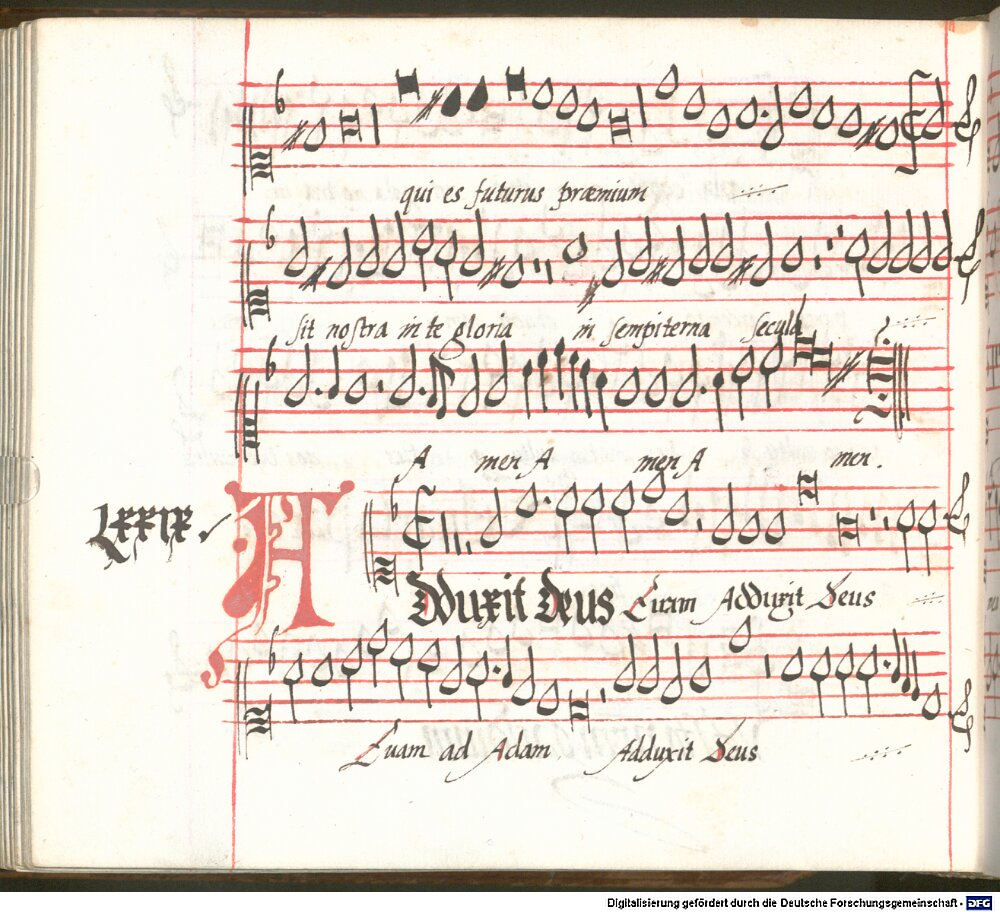 qui es futurus præmium
sit nostra in te gloria in sempiterna secula
A men A men A men.
LXXIX
ADduxit Deus Euam Adduxit Deus
Euam ad Adam Adduxit Deus
Digitalisierung gefördert durch die Deutsche Forschungsgemeinschaft - DFG